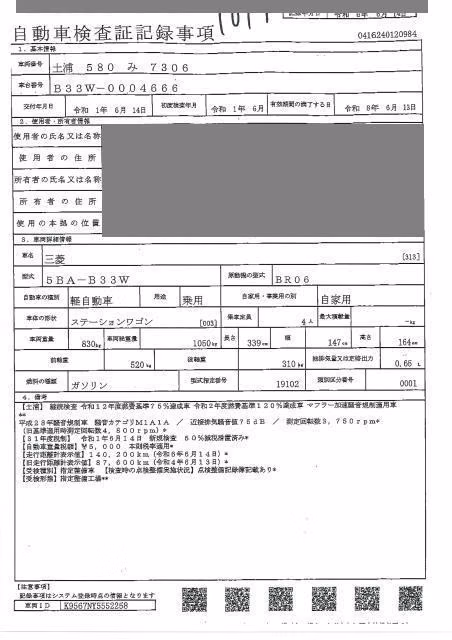 自動車検査証記録事項
0416240120984
1．基本情報
車両番号 土浦 580 み 7306
車台番号 B33W-0004666
交付年月日 令和 1年 6月 14日 初度検査年月 令和 1年 6月 有効期間の満了する日 令和 8年 6月 13日
2．使用者・所有者情報
使用者の氏名又は名称
使用者の住所
所有者の氏名又は名称
所有者の住所
使用の本拠の位置
3．車両詳細情報
車名 三菱 [313]
型式 5BA-B33W 原動機の型式 BR06
自動車の種別 軽自動車 用途 乗用 自家用・事業用の別 自家用
車体の形状 ステーションワゴン [003] 乗車定員 4人 最大積載量 -kg
車両重量 830kg 車両総重量 1050kg 長さ 339cm 幅 147cm 高さ 164cm
前軸重 520kg 後軸重 310kg 総排気量又は定格出力 0.65 L
燃料の種類 ガソリン 型式指定番号 19102 類別区分番号 0001
4．備考
【土浦】 継続検査 令和12年度燃費基準75%達成車 令和2年度燃費基準120%達成車 マフラー加速騒音規制適用車
**
平成28年騒音規制車 騒音カテゴリM1A1A ／ 近接排気騒音値75dB ／ 測定回転数3,750rpm）*
（旧基準適用時測定回転数4,800rpm）*
【31年度税制】 令和1年6月14日 新規検査 50%減税措置済み*
【自動車重量税額】 ¥5,000 本則税率適用*
【走行距離計表示値】 140,200km（令和6年6月14日）*
【旧走行距離計表示値】 87,600km（令和4年6月13日）*
【受検種別】指定整備車 【検査時の点検整備実施状況】点検整備記録簿記載あり*
【受検形態】指定整備工場**
【注意事項】
記録事項はシステム登録時点の情報となります
車両ID K9567NY5552258